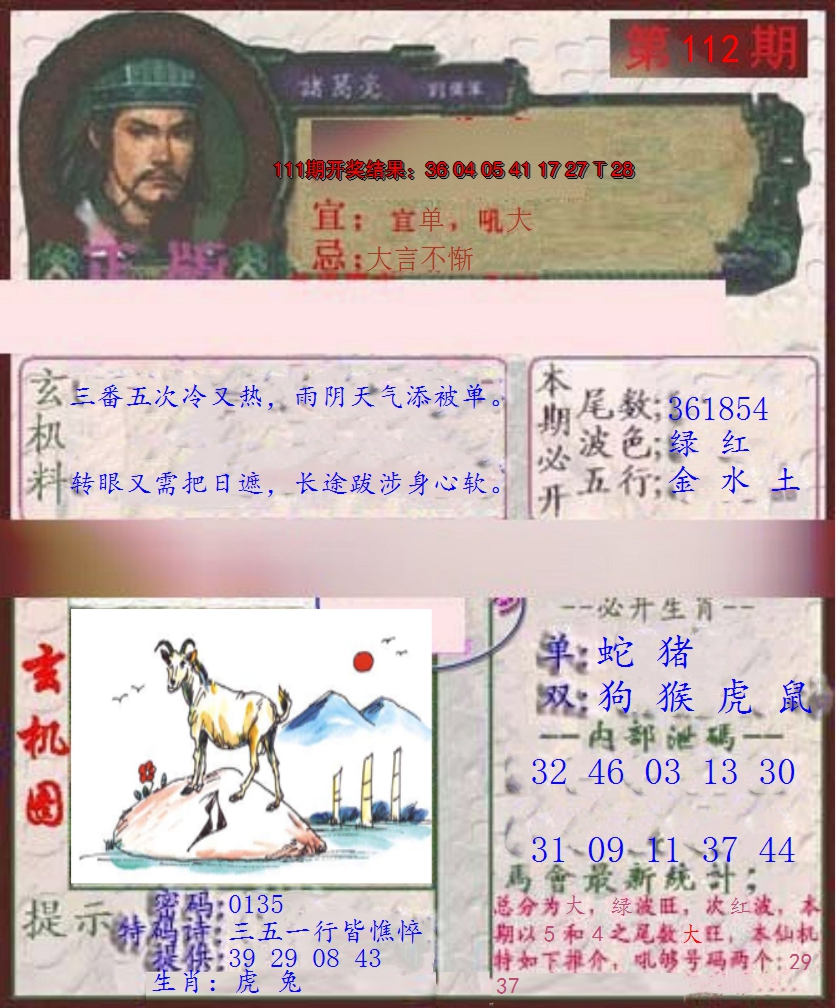 第112期
諸葛亮
111期开奖结果：36 04 05 41 17 27 T 28
宜：宜单，吼大
忌：大言不惭
正版
玄机料
三番五次冷又热，雨阴天气添被单。
转眼又需把日遮，长途跋涉身心软。
本期必开
尾数；361854
波色；绿 红
五行；金 水 土
玄机图
--必开生肖--
单：蛇 猪
双：狗 猴 虎 鼠
—内部泄碼—
32 46 03 13 30
31 09 11 37 44
馬會最新統計；
总分为大，绿波旺，次红波，本
期以5和4之尾数大旺，本仙机
特如下推介，吼够号码两个：29
37
提示
密码：0135
特码诗：三五一行皆憔悴
提供：39 29 08 43
生肖：虎 兔